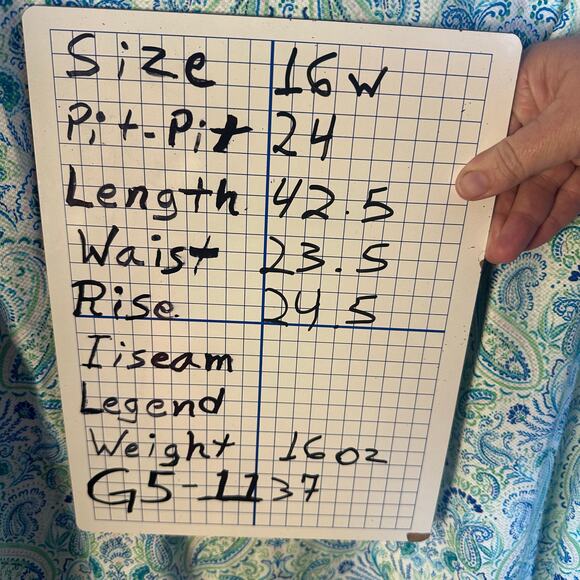 Size 16W
Pit-Pit 24
Length 42.5
Waist 23.5
Rise. 24.5
Iiseam
Legend
Weight 16 oz
G5-1137